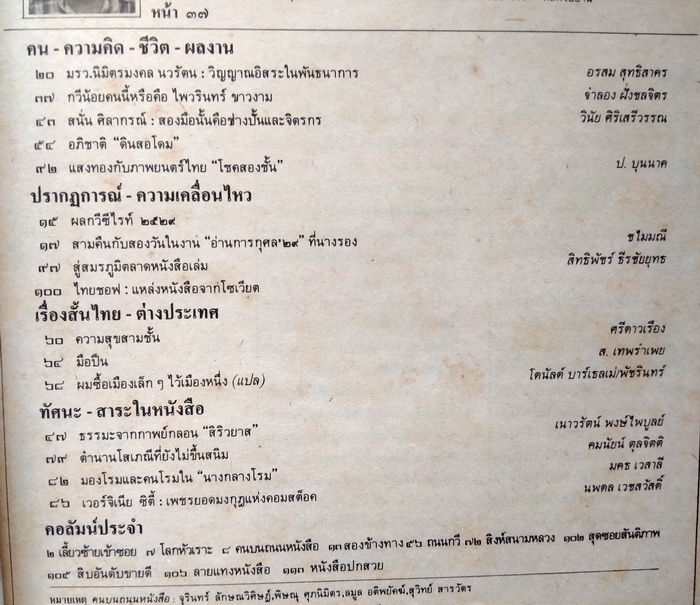 หน้า ๓๗
คน - ความคิด - ชีวิต - ผลงาน
๒๐ มรว.นิมิตรมงคล นวรัตน : วิญญาณอิสระในพันธนาการ อรสม สุทธิสาคร
๓๗ กวีน้อยคนนี้หรือคือ ไพวรินทร์ ขาวงาม จำลอง ฝั่งชลจิตร
๔๓ สนั่น ศิลากรณ์ : สองมือนั้นคือช่างปั้นและจิตรกร วินัย ศิริเสรีวรรณ
๕๔ อภิชาติ “ดินสอโดม”
๙๒ แสงทองกับภาพยนตร์ไทย “โชคสองชั้น” ป. บุนนาค
ปรากฏการณ์ - ความเคลื่อนไหว
๑๕ ผลกวีซีไรท์ ๒๕๒๙
๑๗ สามคืนกับสองวันในงาน “อ่านการกุศล'๒๙” ที่นางรอง ชไมมณี
๙๗ สู่สมรภูมิตลาดหนังสือเล่ม สิทธิพัชร์ ธีรชัยยุทธ
๑๐๐ ไทยซอฟ : แหล่งหนังสือจากโซเวียต
เรื่องสั้นไทย - ต่างประเทศ
๖๐ ความสุขสามชั้น ศรีดาวเรือง
๖๔ มือปืน ส. เทพรำเพย
๖๘ ผมซื้อเมืองเล็ก ๆ ไว้เมืองหนึ่ง (แปล) โดนัลด์ บาร์เธลเม่/พัชรินทร์
ทัศนะ - สาระในหนังสือ
๔๗ ธรรมะจากกาพย์กลอน “สิริวยาส” เนาวรัตน์ พงษ์ไพบูลย์
๗๙ ตำนานโสเภณีที่ยังไม่ขึ้นสนิม คมนัยน์ ดุลจิตติ
๘๒ มองโรมและคนโรมใน “นางกลางโรม” มคธ เวสาลี
๘๖ เวอร์จิเนีย ซิตี้ : เพชรยอดมงกุฎแห่งคอมสต็อค นพดล เวชสวัสดิ์
คอลัมน์ประจำ
๒ เลี้ยวซ้ายเข้าซอย ๗ โลกหัวเราะ ๘ คนบนถนนหนังสือ ๑๓ สองข้างทาง ๕๖ ถนนกวี ๗๒ สิงห์สนามหลวง ๑๐๒ สุดซอยสันติภาพ
๑๐๕ สิบอันดับขายดี ๑๐๖ ลายแทงหนังสือ ๑๑๓ หนังสือปกสวย
หมายเหตุ คนบนถนนหนังสือ : จุรินทร์ ลักษณวิศิษฏ์,พิษณุ ศุภนิมิตร,ลมูล อติพยัคฆ์,สุวิทย์ สารวัตร